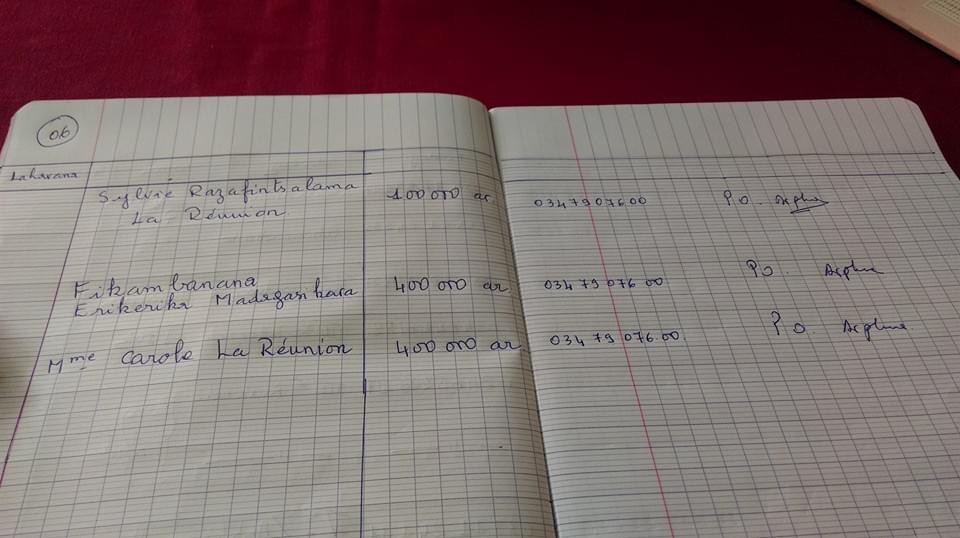 06
Laharana
Sylvie Razafintsalama 100 000 ar 0347907600 P.O.
La Réunion
Fikambanana
Erikerika Madagasikara 400 000 ar 034 79 076 00 PO
Mme Carole La Réunion 400 000 ar 034 79 076.00. P.O.